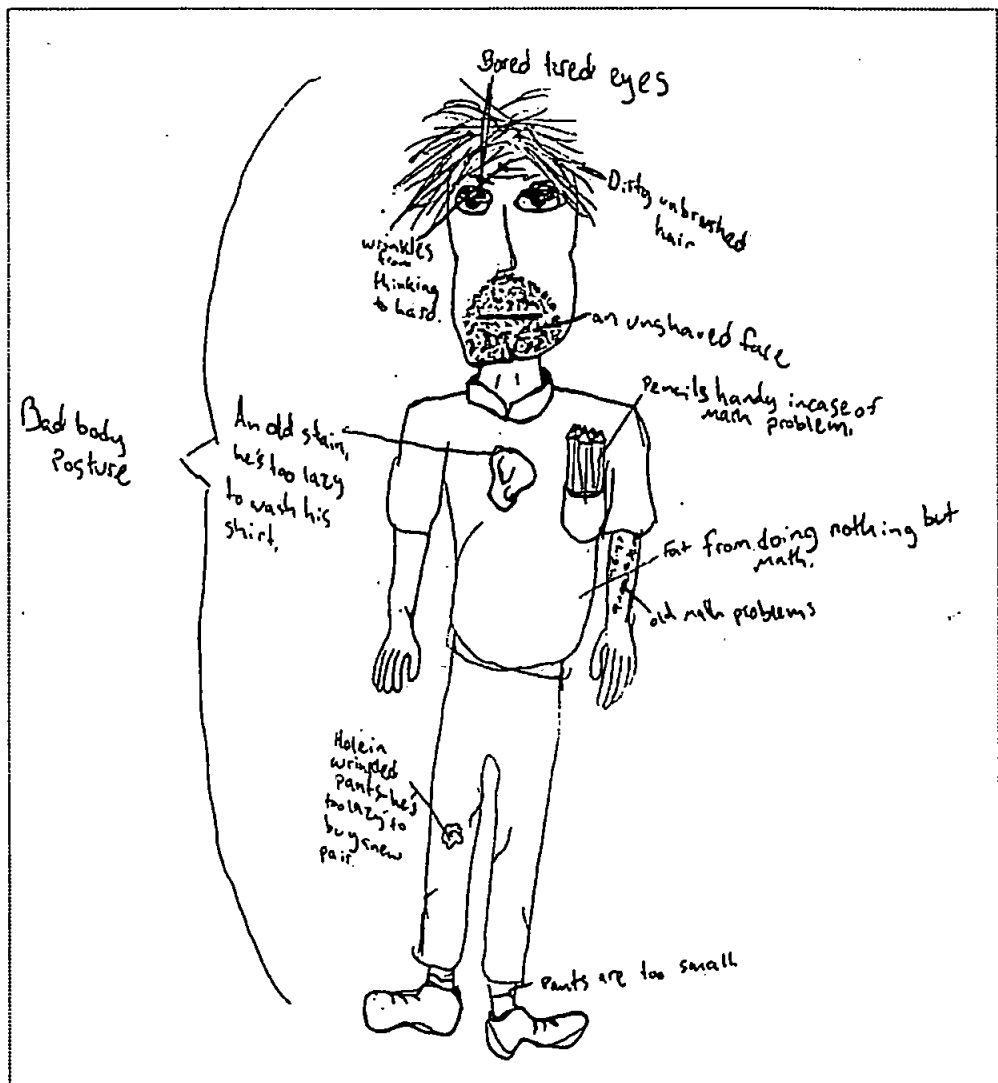 Bored tired eyes
Dirty unbrushed
hair
wrinkles
from
thinking
to hard.
an unshaved face
Pencils handy incase of
math problem.
Bad body
Posture
An old stain,
he's too lazy
to wash his
shirt.
Fat from doing nothing but
math.
old math problems
Hole in
wrinkled
pants-he's
too lazy to
buy a new
pair.
Pants are too small